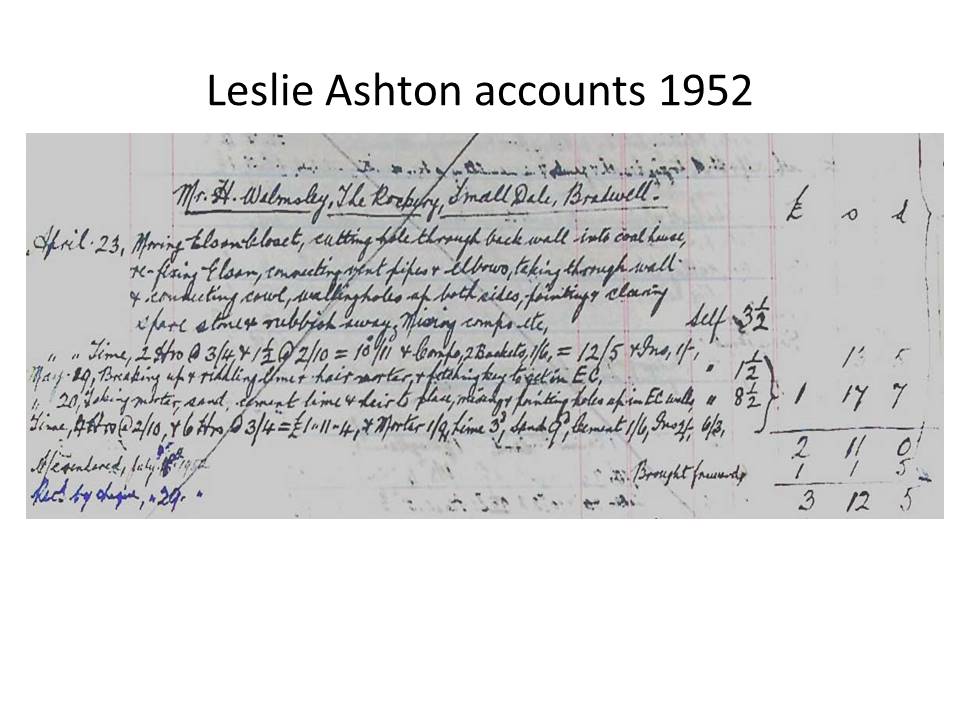 Leslie Ashton accounts 1952
Mr. H. Walmsley, The Rockery, Small Dale, Bradwell.
£ s d
April 23, Moving Elsan Closet, cutting hole through back wall into coal house,
re-fixing Elsan, connecting vent pipes & elbows, taking through wall
& connecting cowl, walling holes up both sides, pointing & clearing
spare stone & rubbish away, Mixing compo etc, Self 3½
" " Time, 2 Hrs @ 3/4 & 1½ @ 2/10 = 10/11 & Compo, 2 Buckets, 1/6, = 12/5 & Ins, 1/-, 13 5
May 20, Breaking up & riddling lime & hair morter, & fetching key to get in E C, " 1½
" 20, Taking morter, sand, cement lime & hair to place, mixing & pointing holes up in E C walls, " 8½ 1 17 7
Time, 4 Hrs @ 2/10, & 6 Hrs @ 3/4 = £1-11-4, & Morter 1/9, Lime 3d, Sand 9d, Cement 1/6, Ins 2/-, 6/3,
2 11 0
A/c rendered, July 1952 Brought forward 1 1 5
Recd by cheque, " 29. " 3 12 5